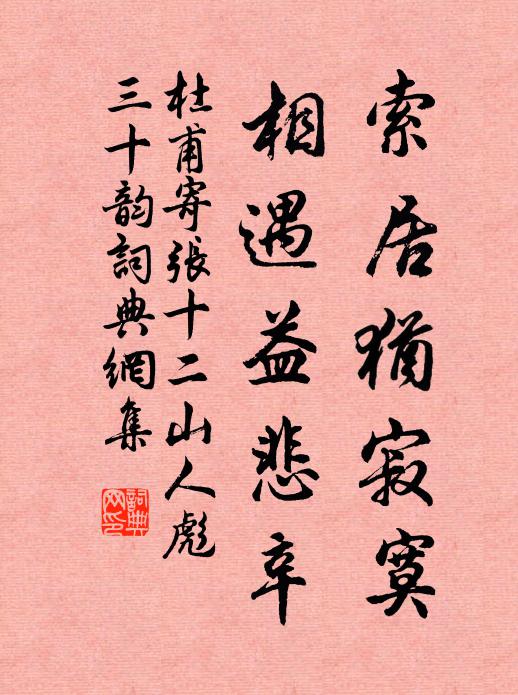 索居猶寂寞
相遇益悲辛
杜甫寄張十二山人彪
三十韵詞典網集
詞典
网印